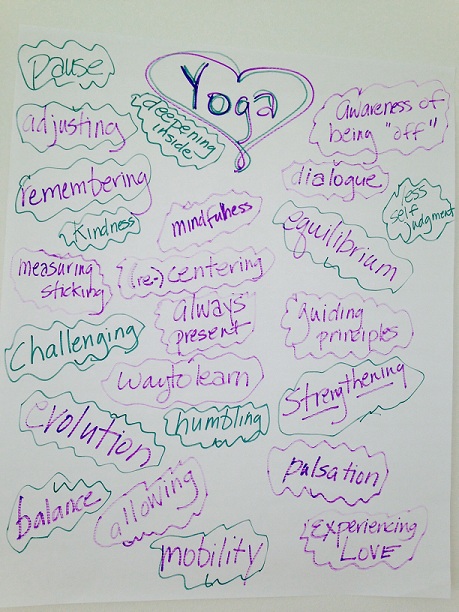 pause
Yoga
deepening
inside
adjusting
awareness of
being "off"
remembering
dialogue
less
self
judgment
Kindness
mindfulness
equilibrium
measuring
sticking
(re-) centering
always
present
guiding
principles
Challenging
way to learn
Strengthening
evolution
humbling
pulsation
balance
allowing
experiencing
LOVE
mobility